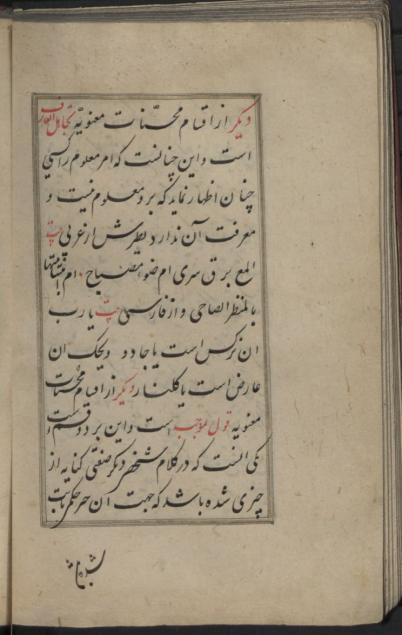 دیگر از اقسام محسّنات معنویّه تجاهل العارف
است و این چنانست که امر معلوم را کسی
چنان اظهار نماید که برو معلوم نیست و
معرفت آن ندارد نظیرش از عربی بیت
المع برق سری ام ضوء مصباح ام ابتسامتها
بالمنظر الضاحی و از فارسی بیت یا رب
آن نرکس است یا جادو ویحک آن
عارض است یا کلنار دیگر از اقسام محسّنات
معنویه قول بموجب است و این بر دو قسم است
یکی آنست که در کلام شخص دیگر صفتی کنایه از
چیزی شده باشد که جهت آن چیز حکم ثابت